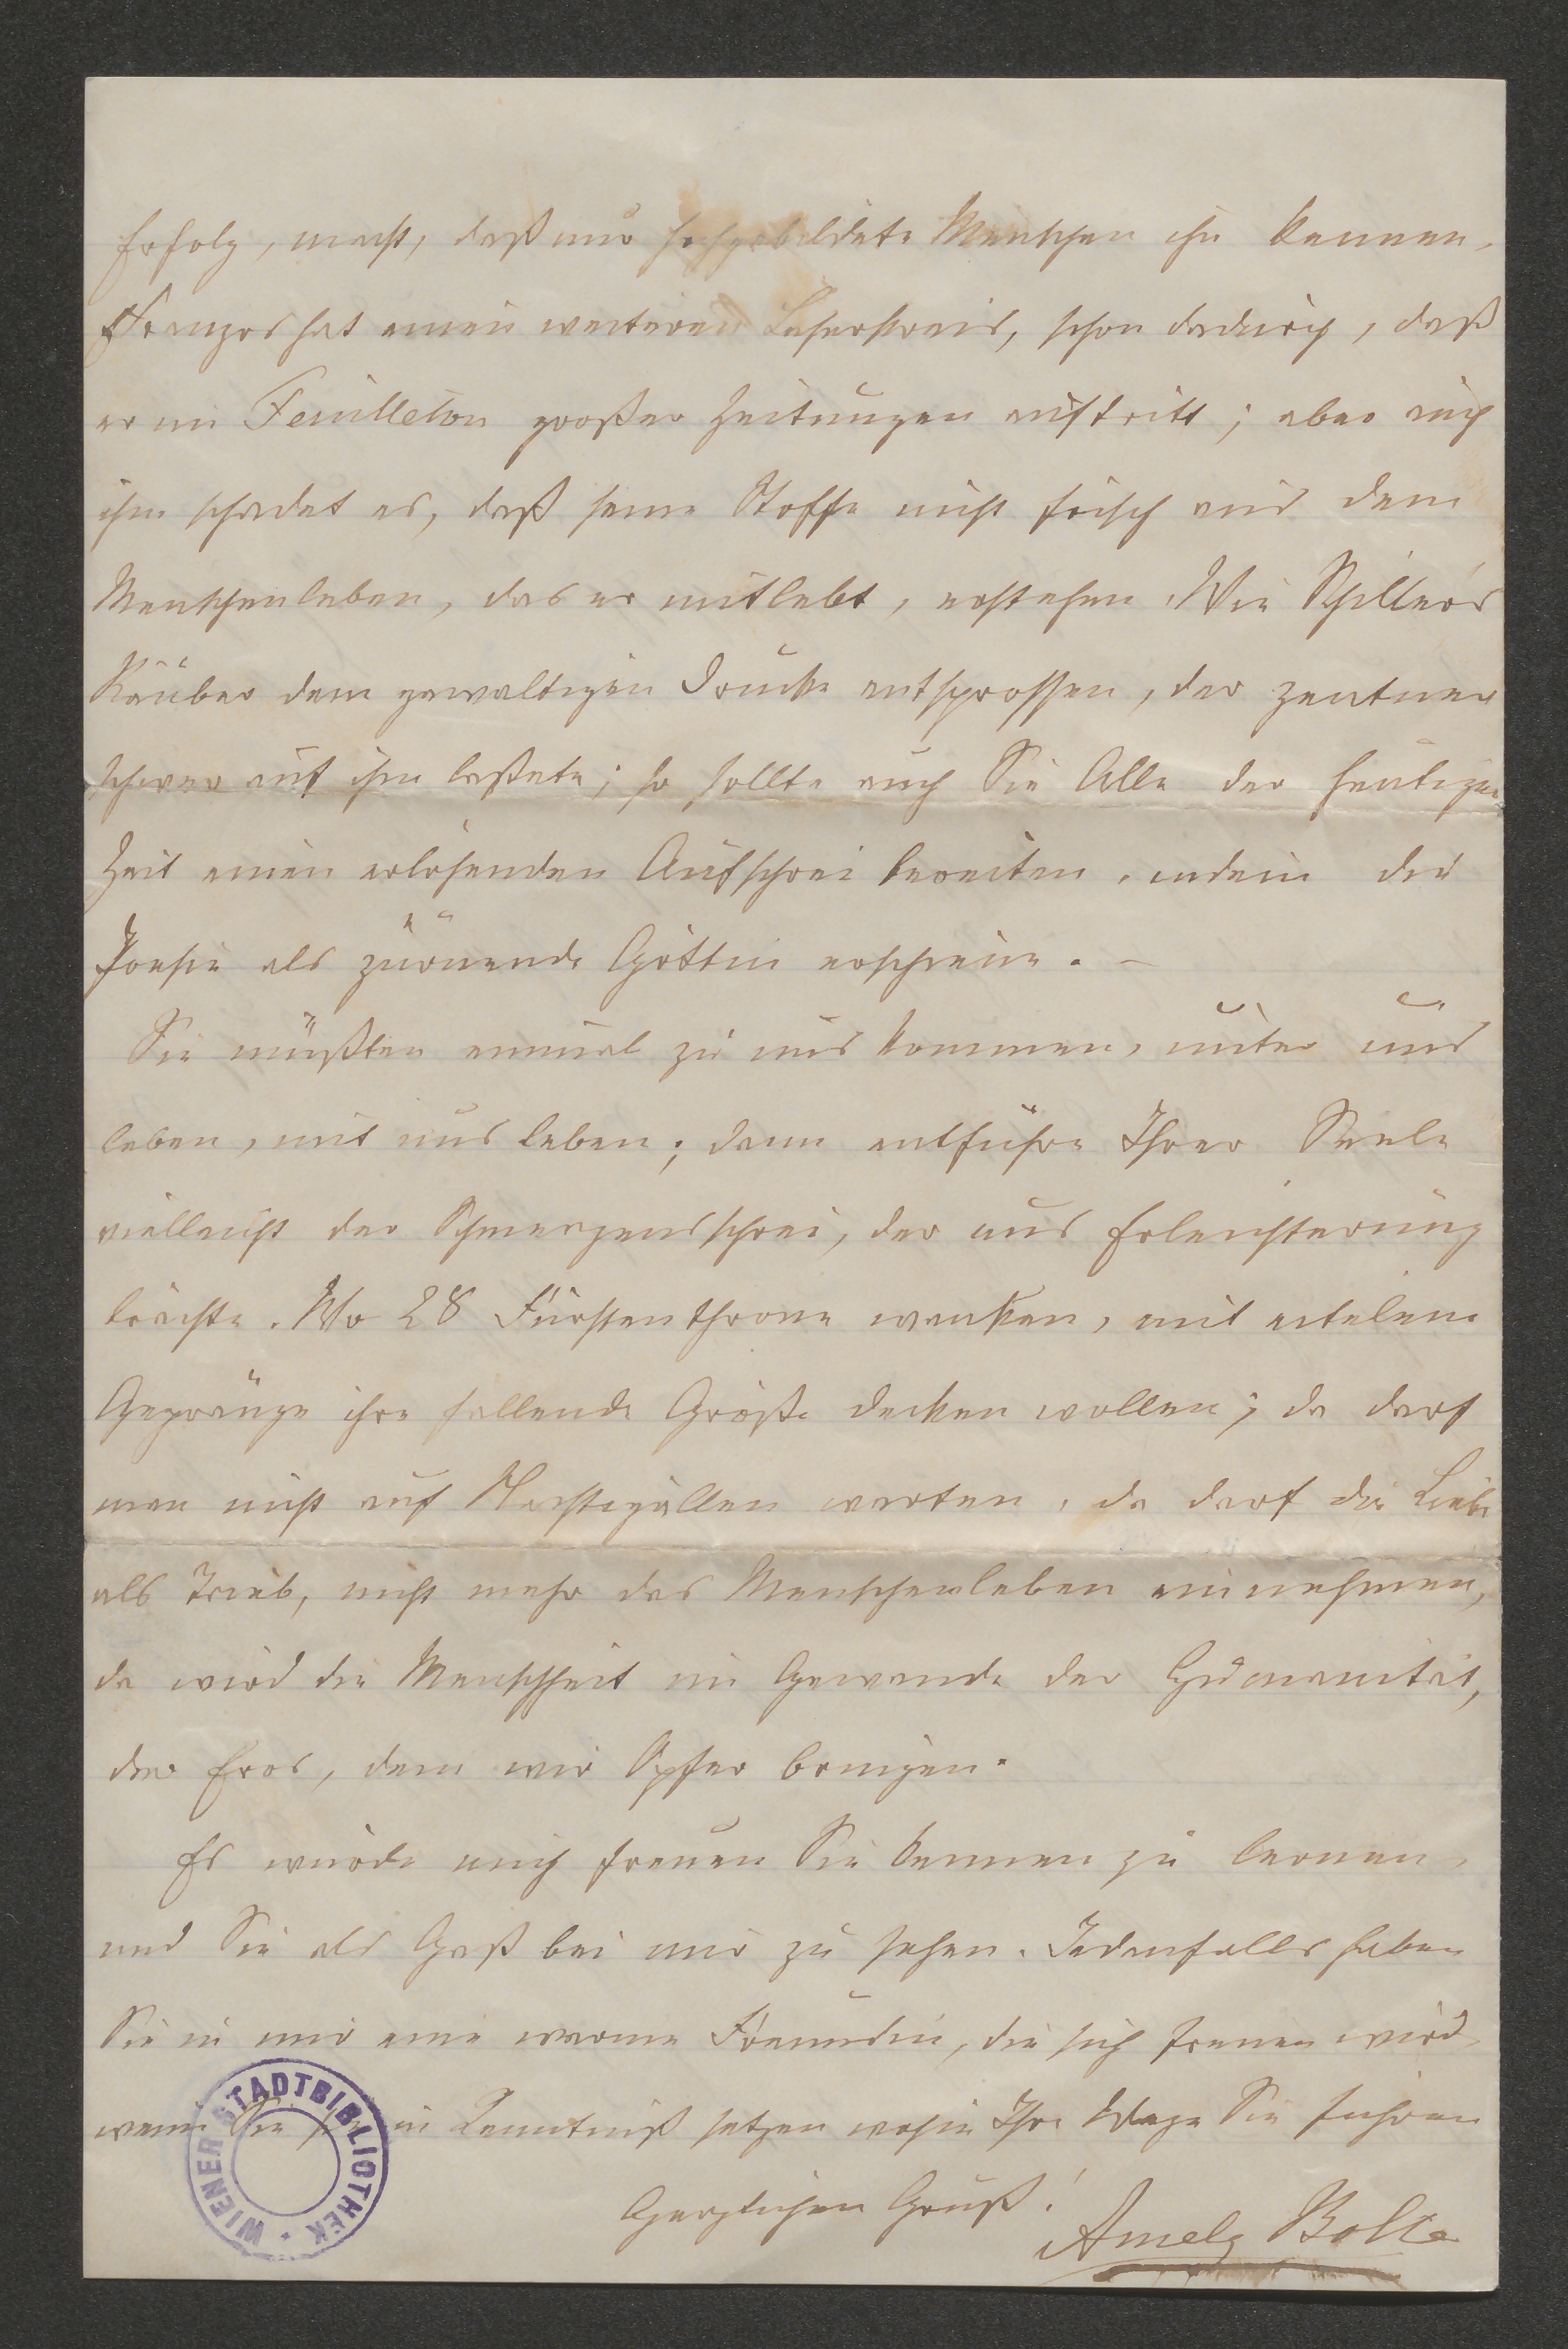 Erfolg, macht, daß nur hochgebildete Menschen ihn kennen.
Franzos hat einen weiteren Leserkreis, schon dadurch, daß
er im Feuilleton großer Zeitungen auftritt; aber auch
ihm schadet es, daß seine Stoffe nicht frisch aus dem
Menschenleben, das er mitlebt, erstehen. Wie Schiller's
Räuber dem gewaltigen Drucke entsprossen, der zentner
schwer auf ihm lastete; so sollte auch Sie Alle der heutigen
Zeit einen erlösenden Aufschrei bereiten, indem die
Poesie als zürnende Göttin erscheine. –
Sie müßten einmal zu uns kommen, unter uns
leben, mit uns leben; dann entführe Ihrer Seele
vielleicht der Schmerzensschrei, der uns Erleichterung
brächte. Wo 28 Fürstenthrone wanken, mit eitelem
Gepränge ihre fallende Größe decken wollen; da darf
man nicht auf Nachtigallen warten, da darf die Liebe
als Trieb, nicht mehr das Menschenleben einnehmen,
da wird die Menschheit im Gewande der Humanität,
der Eros, dem wir Opfer bringen.
Es würde mich freuen Sie kennen zu lernen,
und Sie als Gast bei mir zu sehen. Jedenfalls haben
Sie in mir eine warme Freundin, die sich freuen wird,
wenn Sie sie in Kenntniß setzen wohin Ihre Wege Sie führen
Herzlichen Gruß!
Amely Bolte
WIENER STADTBIBLIOTHEK